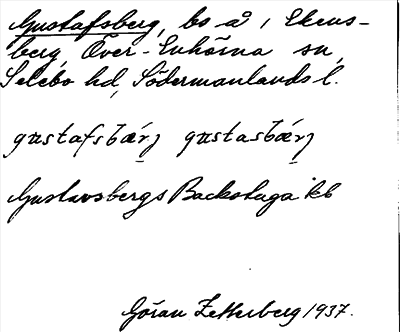 Gustafsberg, bo å i Ekens-
berg, Över-Enhörna sn,
Selebo hd, Södermanlands l.
gustafsbærj gustasbærj
Gustavsbergs Backstuga kb
Göran Zetterberg 1937.